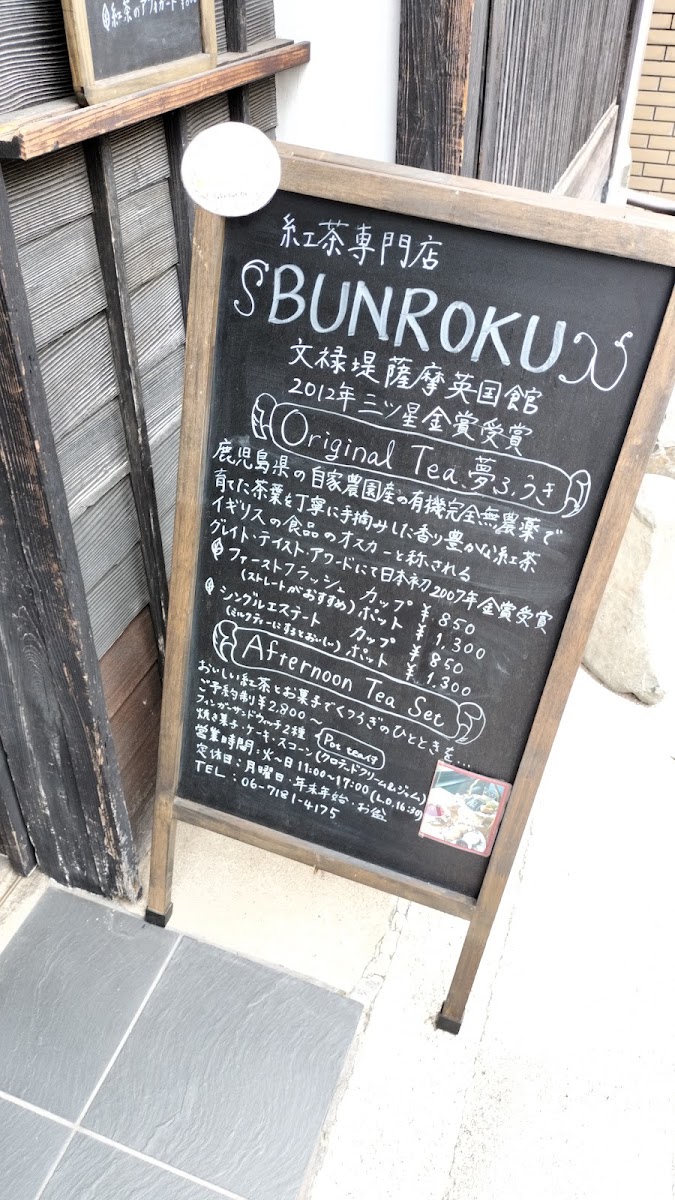 紅茶のアフォガード
紅茶専門店
BUNROKU
文禄堤薩摩英国館
2012年三ツ星金賞受賞
Original Tea 夢ふうき
鹿児島県の自家農園産の有機完全無農薬で
育てた茶葉を丁寧に手摘みした香り豊かな紅茶
イギリスの食品のオスカーと称される
グレイト・テイスト・アワードにて日本初2007年金賞受賞
ファーストフラッシュ カップ ¥850
(ストレートがおすすめ) ポット ¥1,300
シングルエステート カップ ¥850
(ミルクティーにするとおいしい) ポット ¥1,300
Afternoon Tea Set
おいしい紅茶とお菓子でくつろぎのひとときを...
ご予約制¥2.800~
フィンガーサンドウィッチ2種 Pot tea付
焼き菓子・ケーキ・スコーン(クロテッドクリーム&ジャム)
営業時間:火~日11:00~17:00(L.O.16:30)
定休日:月曜日・年末年始・お盆
TEL:06-7181-4175